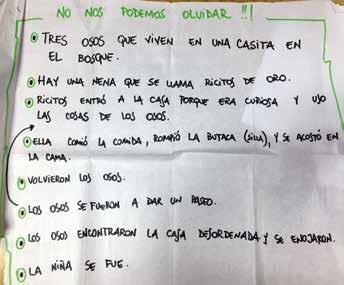 NO NOS PODEMOS OLVIDAR !!!
TRES OSOS QUE VIVEN EN UNA CASITA EN
EL BOSQUE.
HAY UNA NENA QUE SE LLAMA RICITOS DE ORO.
RICITOS ENTRÓ A LA CASA PORQUE ERA CURIOSA Y USO
LAS COSAS DE LOS OSOS.
ELLA COMIÓ LA COMIDA, ROMPIÓ LA BUTACA (SILLA), Y SE ACOSTÓ EN
LA CAMA.
VOLVIERON LOS OSOS.
LOS OSOS SE FUERON A DAR UN PASEO.
LOS OSOS ENCONTRARON LA CASA DESORDENADA Y SE ENOJARON.
LA NIÑA SE FUE.